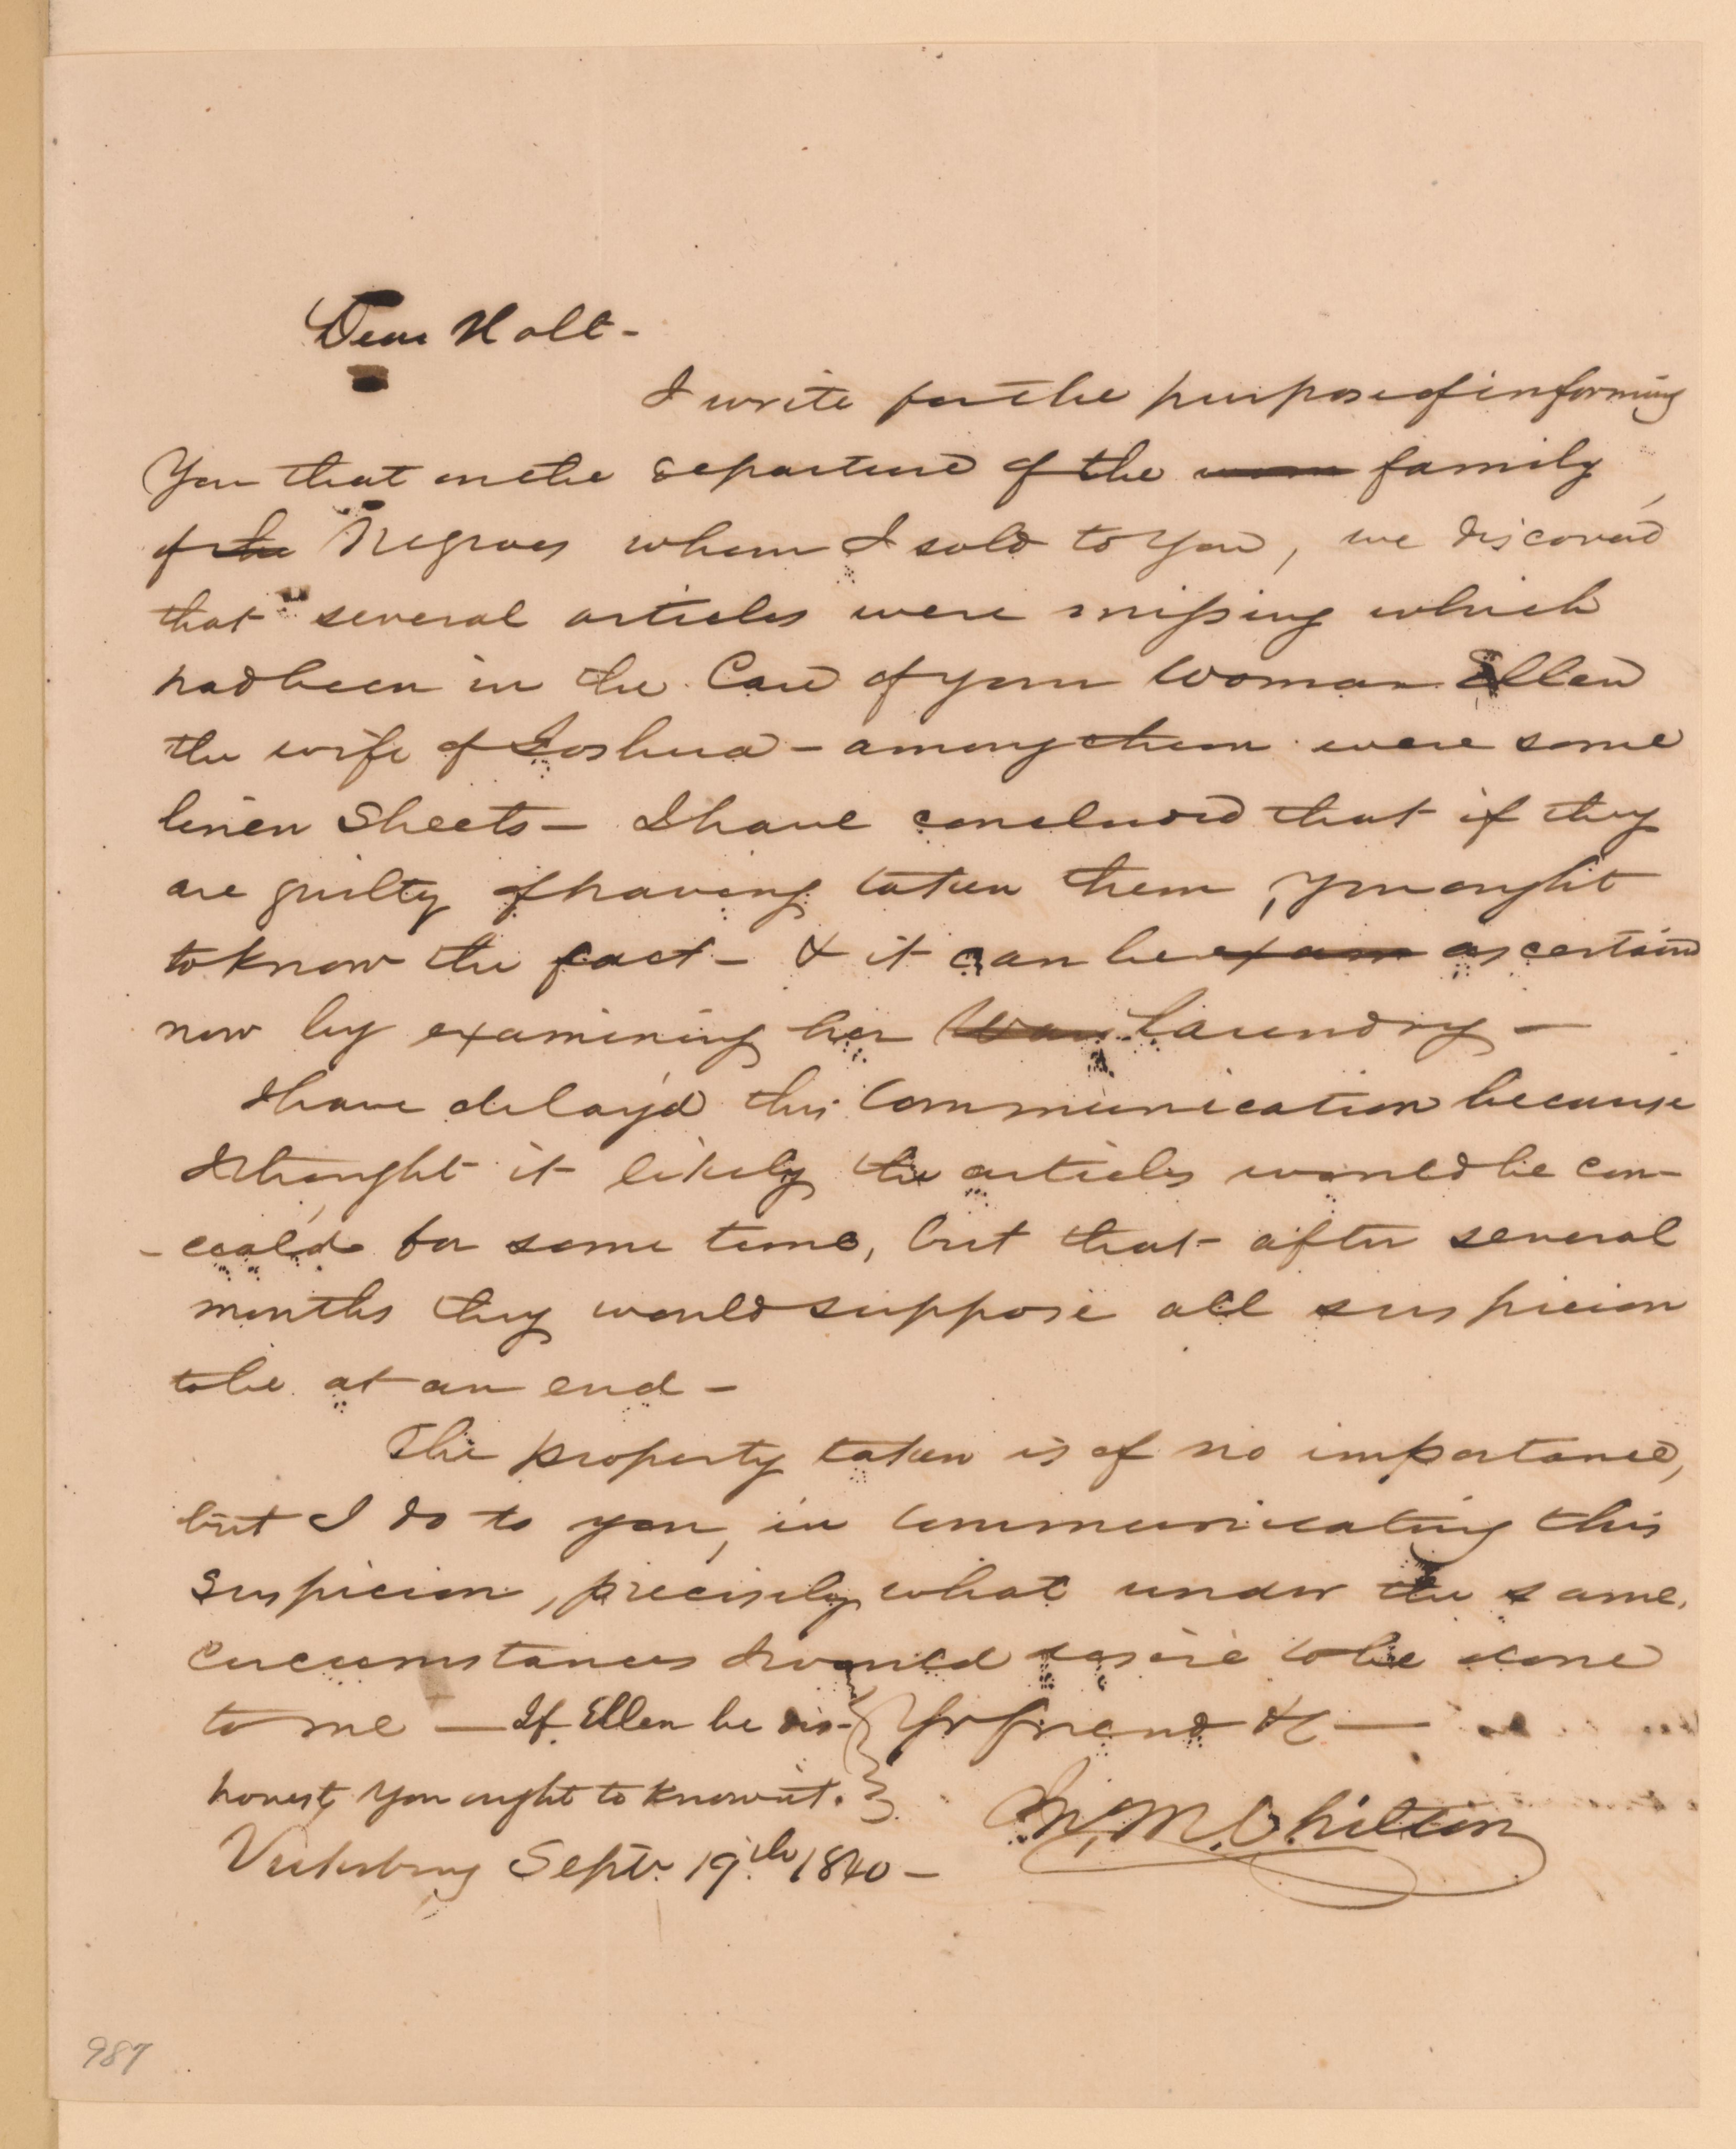 Dear Holt -
I write for the purpose of informing
You that on the departure of the family
of Negroes whom I sold to You, we discovered
that several articles were missing which
had been in the Care of your Woman Ellen
the wife of Joshua - among them were some
linen Sheets - I have concluded that if they
are guilty of having taken them, you ought
to know the fact - & it can be exam ascertained
now by examining her laundry -
I have delay'd this Communication because
I thought it likely the articles would be con-
- ceal'd for some time, but that after several
months they would suppose all suspicion
to be at an end -
The property taken is of no importance,
but I do to you, in communicating this
suspicion, precisely what under the same
circumstances I would desire to be done
to me - If Ellen be dis- Yr friend &c -
honest, You ought to know it.
Jn. M. Chilton
Vicksburg Septr. 19th. 1840 -
987